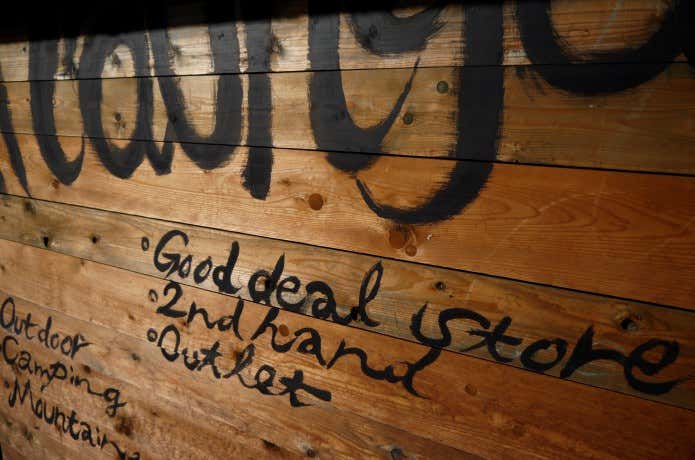 Good deal store
2nd hand
Outlet
Outdoor
Camping
Mountain